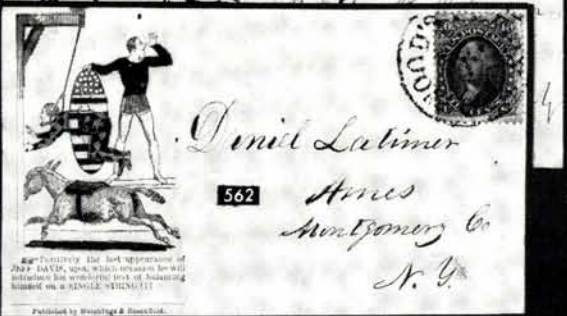 WOOD'S
U.S. POSTAGE
Deniel Latimer
562
Ames
Montgomery Co
N. Y.
Positively the last appearance of
JEFF DAVIS, upon which occasion he will
introduce his wonderful feat of balancing
himself on a SINGLE STRING!!!
Published by Hutchings & Rosenfield.